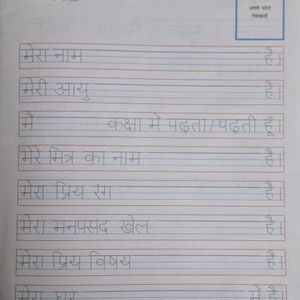 अपनी फोटो
चिपकाएँ
मेरा नाम है।
मेरी आयु है।
मैं कक्षा में पढ़ता/पढ़ती हूँ
मेरे मित्र का नाम है।
मेरा प्रिय रंग है।
मेरा मनपसंद खेल है।
मेरा प्रिय विषय है।
मेरा घर में है